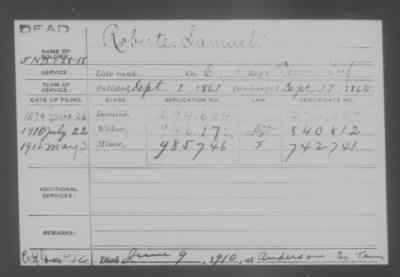 DEAD
NAME OF SOLDIER: Roberts, Samuel
SERVICE: Late rank, Co. E, 1 Reg't Tenn Inf
TERM OF SERVICE: Enlisted Sept 1, 1861 Discharged Sept. 17, 1864
DATE OF FILING. CLASS. APPLICATION NO. LAW. CERTIFICATE NO.
1879 June 26 Invalid, 294.604
1910 July 22 Widow, 946.172 840812
1912 May 3 Minor, 985746 J 742741
ADDITIONAL SERVICES:
REMARKS:
Died June 9, 1910, at Anderson Co. Tenn